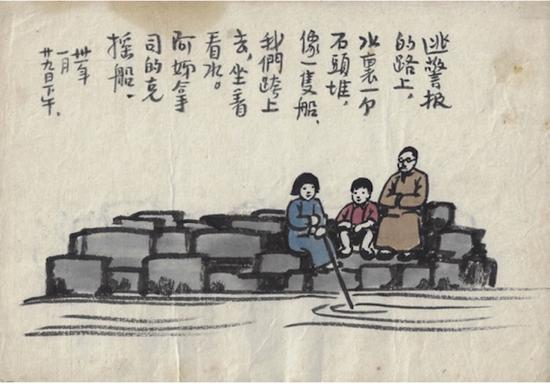 逃警报
的路上,
水裏一个
石頭堆,
像一隻船,
我們跨上
去,坐着
看水。
阿姊拿
司的克
搖船、
卅一年
一月
廿九日下午、